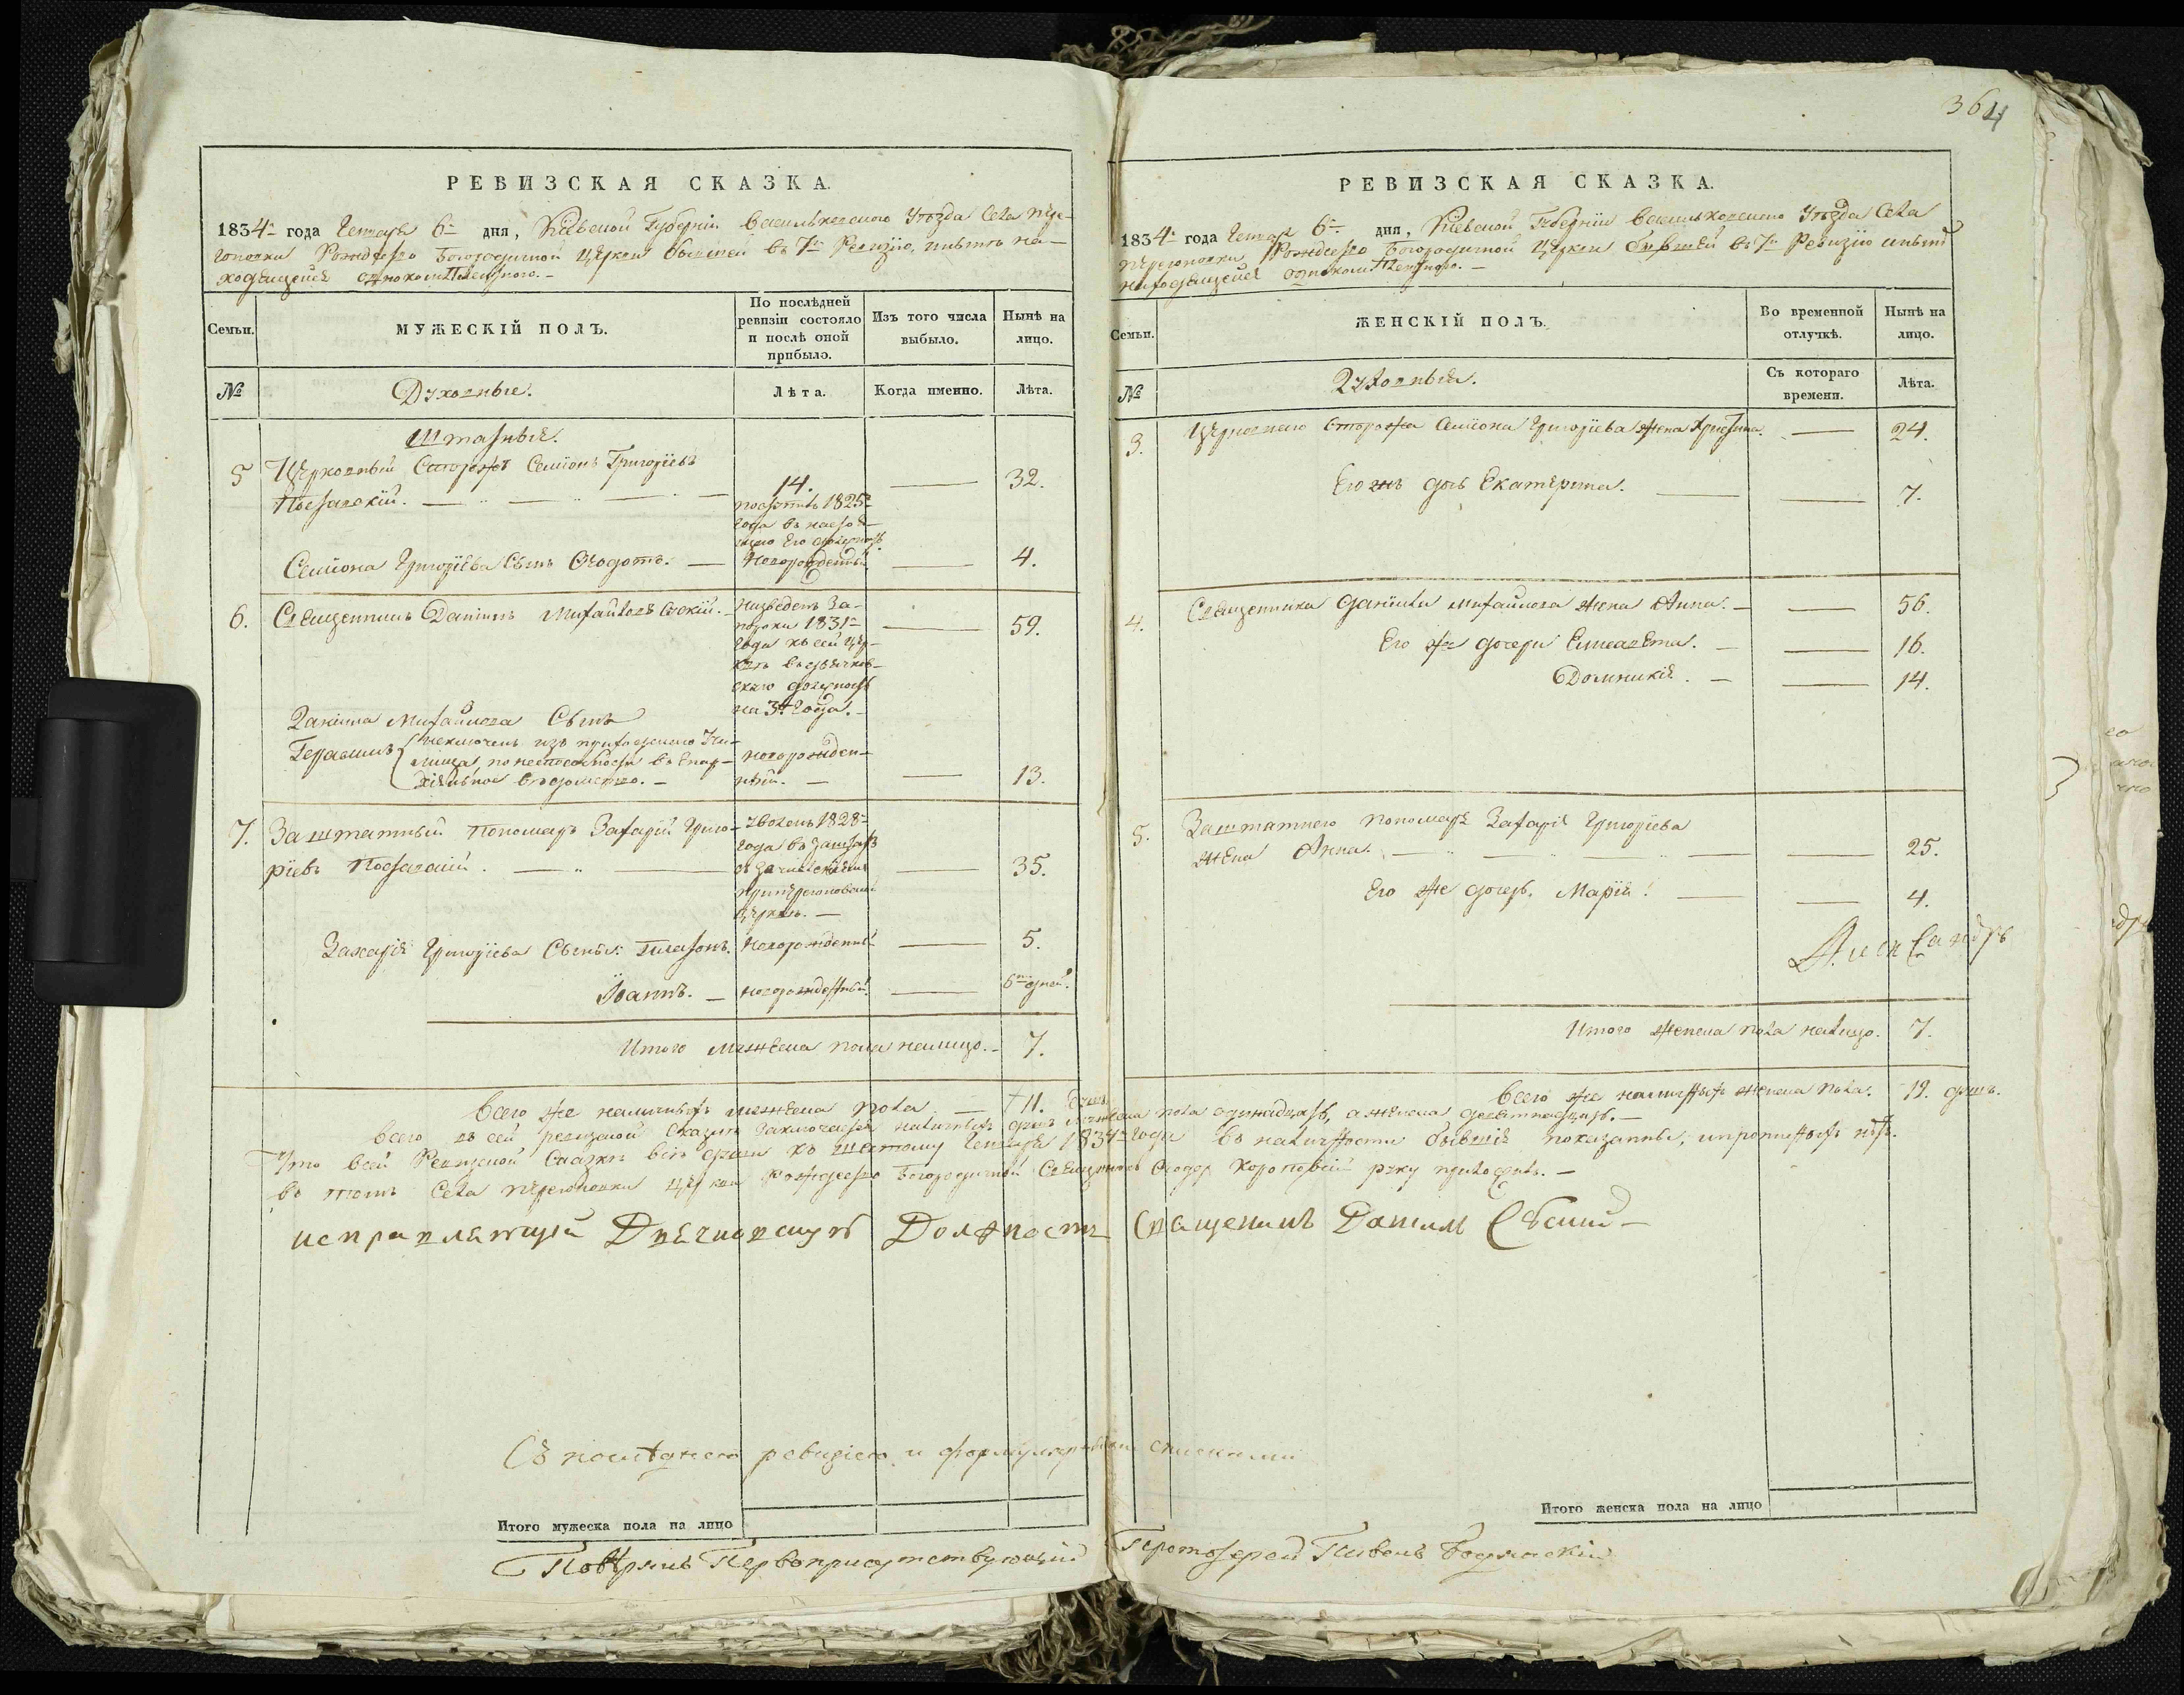 364
РЕВИЗСКАЯ СКАЗКА.
1834 года Генваря 6 дня, Кіевской Губерніи Васильковскаго Уѣзда Села Пере-
гоновки Рождество Богородичной Церкви бывшей въ 7 Ревизію, нынѣ на-
ходящейся однокомплетною.
Семьи.
МУЖЕСКІЙ ПОЛЪ.
По послѣдней
ревизіи состояло
и послѣ оной
прибыло.
Изъ того числа
выбыло.
Нынѣ на
лицо.
№
Духовные.
Лѣта.
Когда именно.
Лѣта.
Штатныя.
5 Церковный Сторожъ Семіонъ Григоріевъ
14. — 32.
1825
года въ
его должность
Семіона Григоріева Сынъ Ѳеодотъ. — Новорожденный — 4.
6. Священникъ Даніилъ Михайловъ — 59.
Низведенъ за
1831
года къ сей цер-
кви въ дьячков-
скую должность
на 3 года.
Даніила Михайлова Сынъ
Герасимъ исключенъ изъ приходскаго Учи-
лища, по неспособности въ Епар-
хіальное вѣдомство. —
новорожден-
ный. — 13.
7. Заштатный Пономарь Захарій Григо-
ріевъ — 35.
уволенъ 1828
года въ заштатъ
церкви. —
Захарія Григоріева Сыны: Платонъ. Новорожденный — 5.
Іоаннъ. — новорожденный — 6 дней.
Итого мужеска пола налицо. — 7.
Всего же наличныхъ мужеска пола — 11. душъ
РЕВИЗСКАЯ СКАЗКА.
1834 года Генваря 6 дня, Кіевской Губерніи Васильковскаго Уѣзда Села
Перегоновки Рождество Богородичной Церкви бывшей въ 7 Ревизію нынѣ
находящейся однокомплетною. —
Семьи.
ЖЕНСКІЙ ПОЛЪ.
Во временной
отлучкѣ.
Нынѣ на
лицо.
№
Духовныя.
Съ котораго
времени.
Лѣта.
3. Церковнаго Сторожа Семіона Григоріева жена Христина. — 24.
Его жъ дочь Екатерина. — 7.
4. Священника Даніила Михайлова жена Анна. — 56.
Его же дочери Елисавета. — 16.
Домникія. — 14.
5. Заштатнаго пономаря Захарія Григоріева
жена Анна. — 25.
Его же дочерь Марія. — 4.
Александръ
Итого женска пола налицо. 7.
Всего же наличныхъ женска пола. 19. душъ.
Всего въ сей ревизской сказкѣ заключается наличныхъ душъ мужеска пола одинадцать, а женска девятнадцать. —
Что въ сей Ревизской Сказкѣ всѣ души къ шестому Генваря 1834 года въ наличности бывшія показанны, и прописныхъ нѣтъ.
въ томъ Села Перегоновки церкви Рождество Богородичной Священникъ Ѳеодоръ руку приложилъ. —
исправляющій Дьячковскую Должность Священникъ Данилъ
Съ послѣднею ревизіею и формулярными списками
Итого мужеска пола на лицо
Итого женска пола на лицо
Повѣрялъ Первоприсутствующій Протоіерей